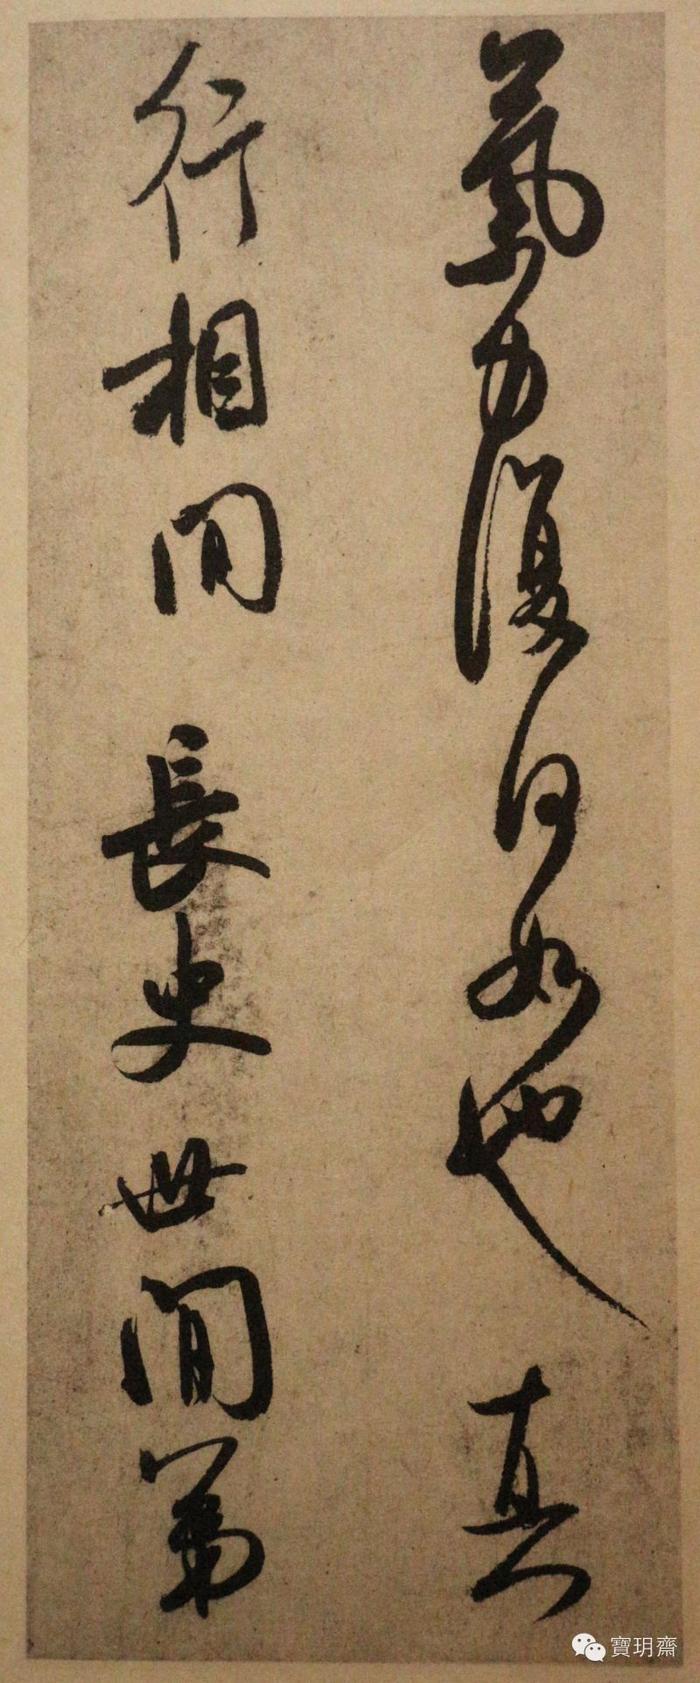 氣力復何如也 真
行相間 長史世間第
寶玥齋